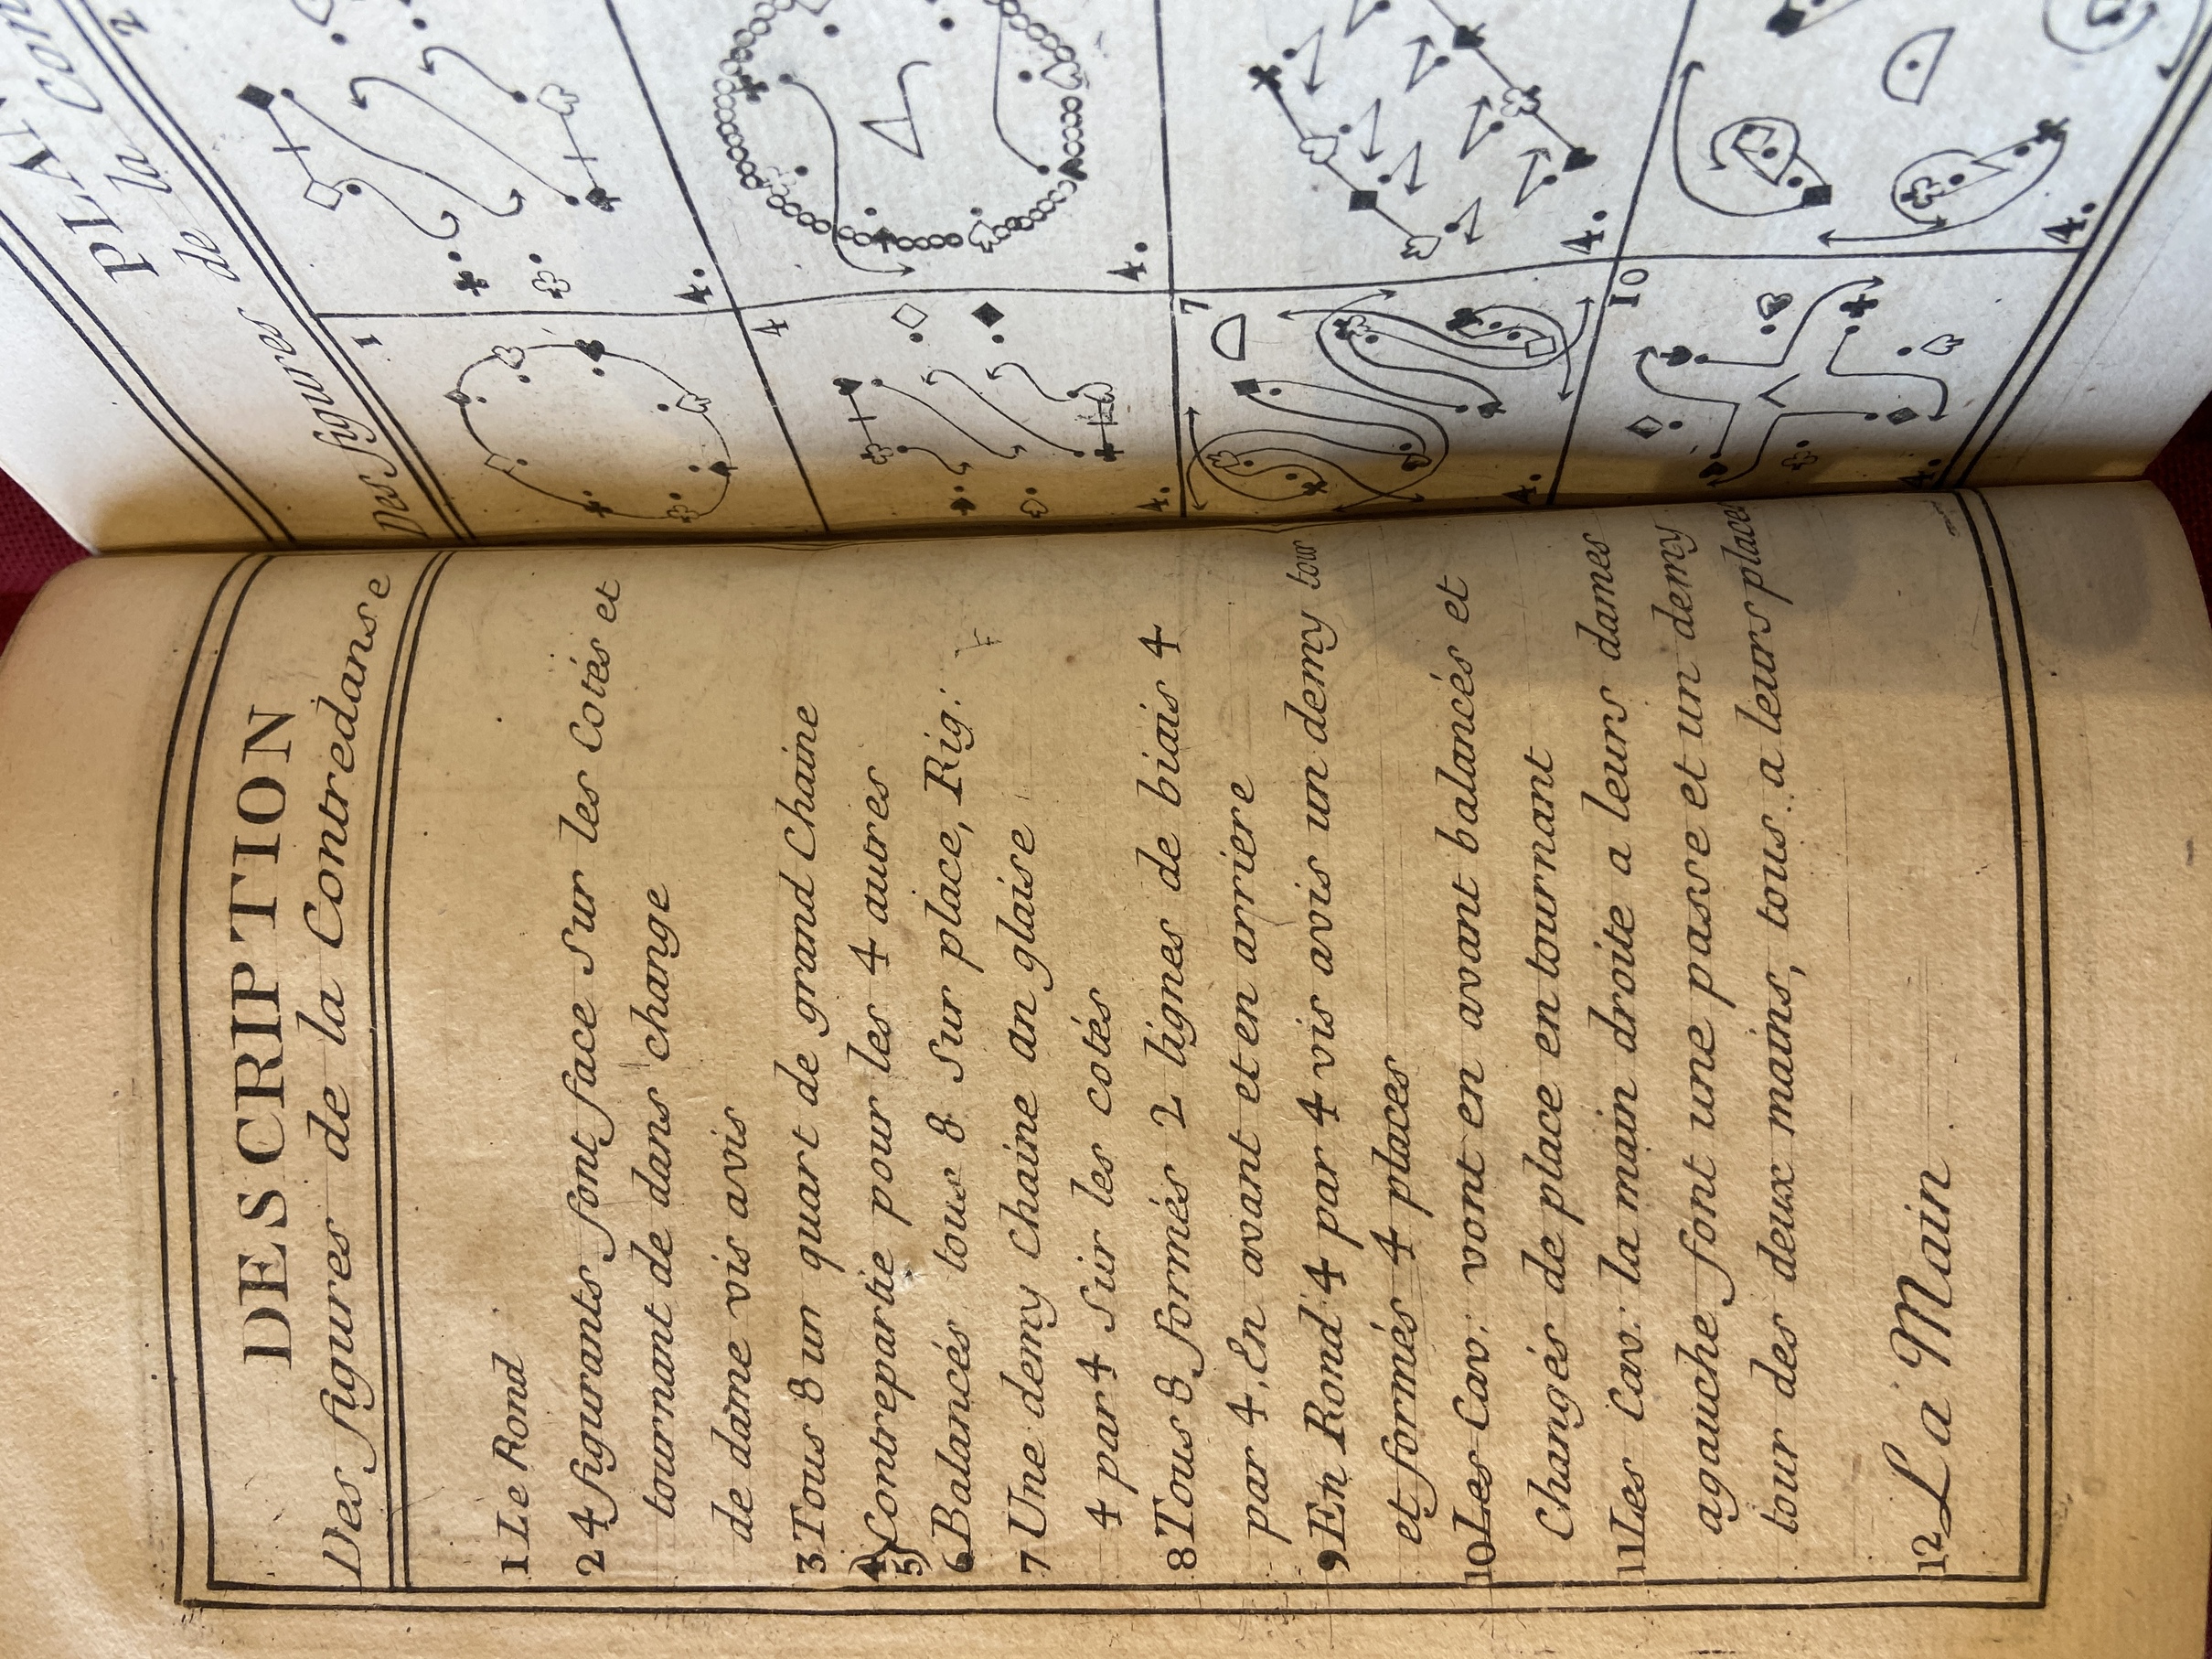 DESCRIPTION
Des figures de la Contredanse
1 Le Rond
2 4 figurants font face sur les Cotés et
tournant de dans change
de dame vis avis
3 Tous 8 un quart de grand Chaine
4
5 Contrepartie pour les 4 autres
6 Balancés tous 8 sur place, Rig.
7 Une demy Chaine an glaise
4 par 4 sur les cotés
8 Tous 8 formés 2 lignes de biais 4
par 4, En avant et en arriere
9 En Rond 4 par 4 vis avis un demy tour
et formés 4 places
10 Les Cav. vont en avant balancés et
Changés de place en tournant
11 Les Cav. la main droite a leurs dames
agauche font une passe et un demy
tour des deux mains, tous a leurs places
12 La Main
de la
Des figures de
1
2
4.
4
4.
4.
7
4.
4.
10
4.
4.